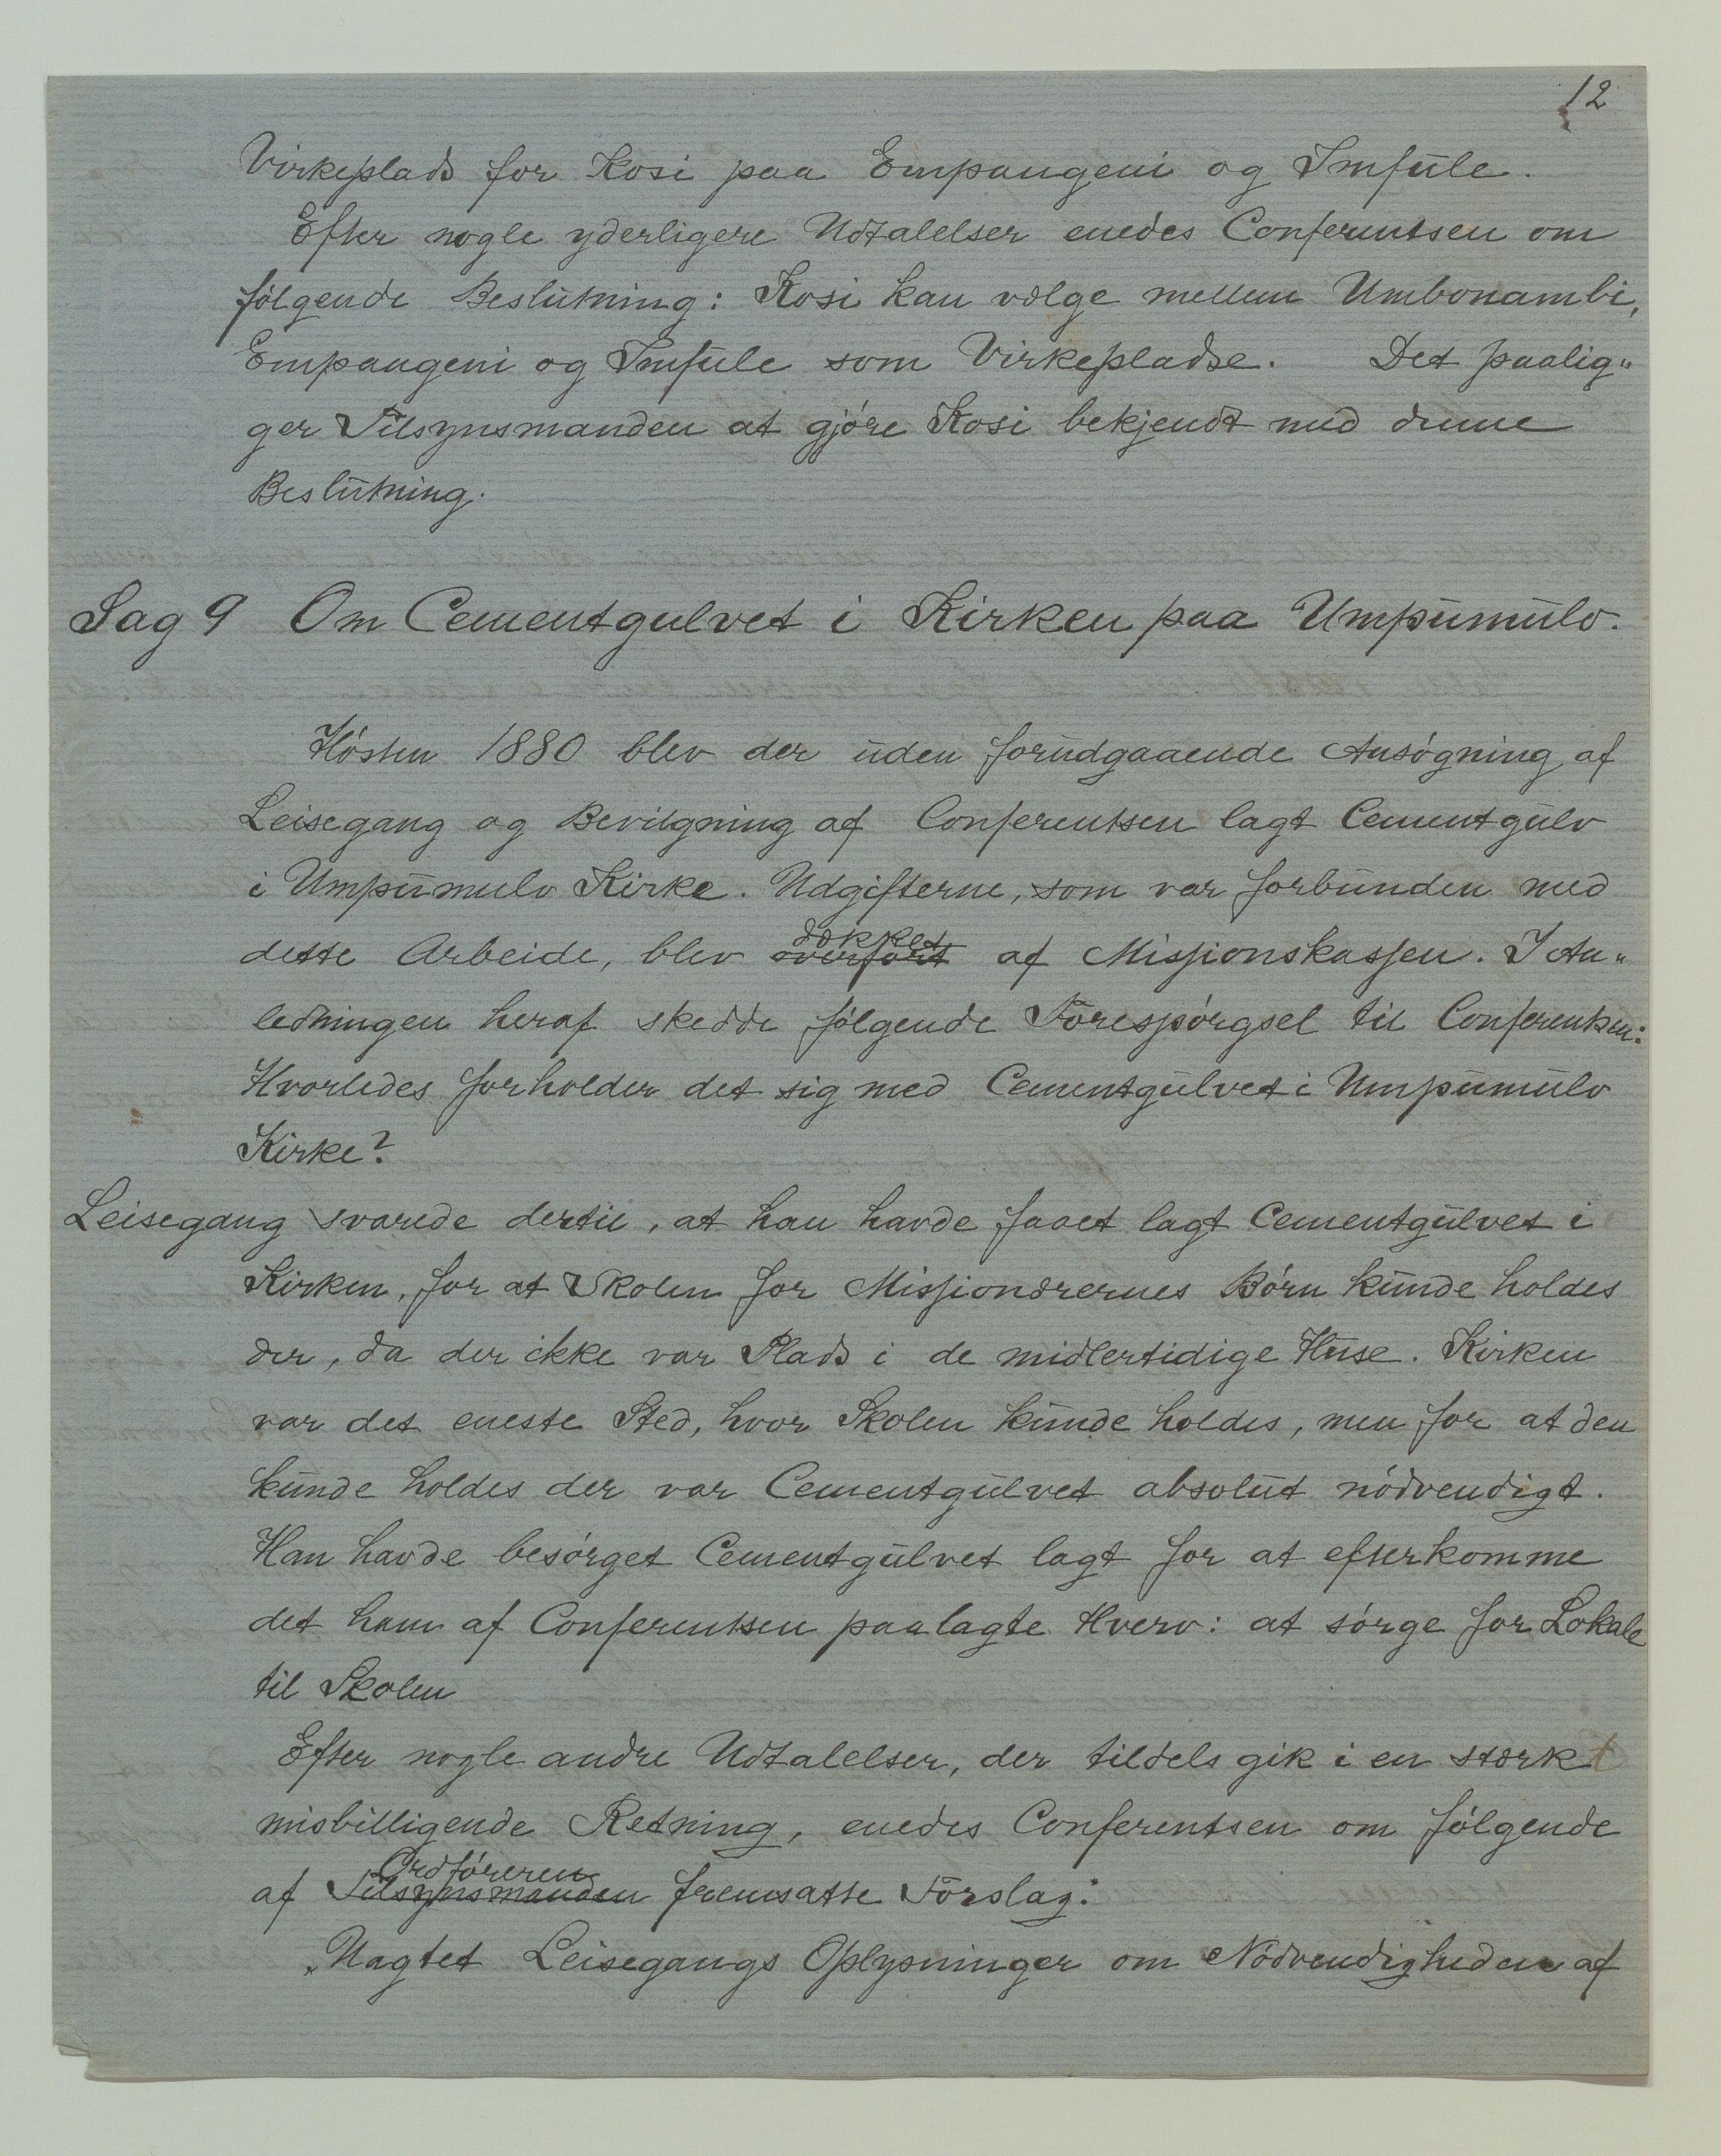 12
Virkeplads for Kosi paa Empangeni og Imfule.
Efter nogle yderligere Udtalelser enedes Conferentsen om
følgende Beslutning: Kosi kan vælge mellem Umbonambi,
Empangeni og Imfule som Virkepladse. Det paalig„
ger Tilsynsmanden at gjøre Kosi bekjendt med denne
Beslutning.
Sag 9 Om Cementgulvet i Kirken paa Umpumulo.
Høsten 1880 blev der uden forudgaaende Ansøgning af
Leisegang og Bevilgning af Conferentsen lagt Cementgulv
i Umpumulo Kirke. Udgifterne, som var forbunden med
dækket
dette Arbeide, blev overført af Missionskassen. I An„
ledningen heraf skedde følgende Forespørgsel til Conferentsen:
Hvorledes forholder det sig med Cementgulvet i Umpumulo
Kirke?
Leisegang svarede dertil, at han havde faaet lagt Cementgulvet i
Kirken, for at Skolen for Missionærernes Børn kunde holdes
der, da der ikke var Plads i de midlertidige Huse. Kirken
var det eneste Sted, hvor Skolen kunde holdes, men for at den
kunde holdes der var Cementgulvet absolut nødvendigt.
Han havde besørget Cementgulvet lagt for at efterkomme
det ham af Conferentsen paalagte Hverv: at sørge for Lokale
til Skolen
Efter nogle andre Udtalelser, der tildels gik i en stærk
misbilligende Retning, enedes Conferentsen om følgende
Ordføreren
af Tilsynsmanden fremsatte Forslag:
„Uagtet Leisegangs Oplysninger om Nødvendigheden af